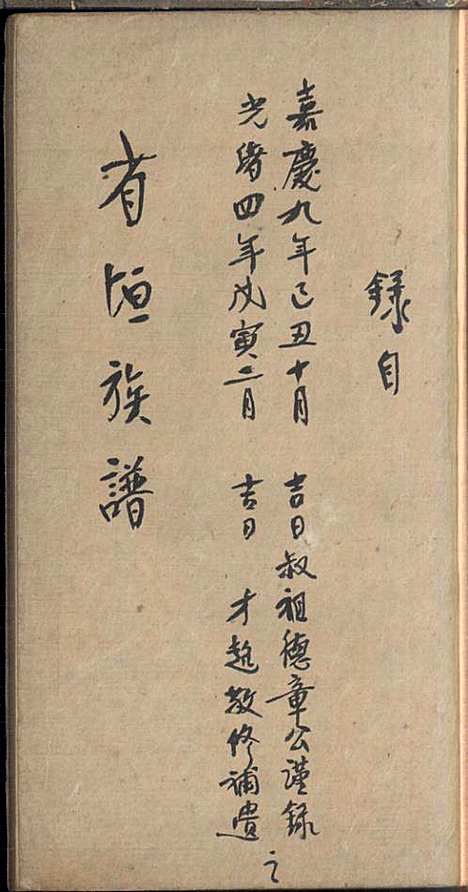 録自
嘉慶九年己丑十月 吉日叔祖德章公謹錄
光緒四年戊寅二月 吉日 才起敬修補遺之
省垣族譜